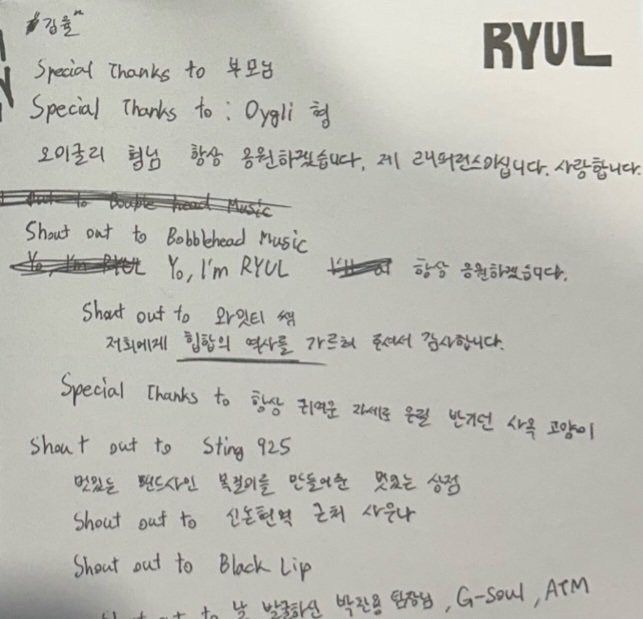 "김율"
RYUL
Special Thanks to 부모님
Special Thanks to : Oygli 형
오이글리 형님 항상 응원하겠습니다, 제 래퍼런스이십니다. 사랑합니다.
out to Double head Music
Shout out to Bobblehead Music
Yo, I'm RYUL Yo, I'm RYUL 항상 응원하겠습니다.
Shout out to 와잇티 쌤
저희에게 힙합의 역사를 가르쳐 주셔서 감사합니다.
Special Thanks to 항상 귀여운 자세로 우릴 반기던 사옥 고양이
Shout out to Sting 925
멋있는 밴드사인 목걸이를 만들어준 멋있는 상점
Shout out to 신논현역 근처 사우나
Shout out to Black Lip
out to 날 발굴하신 박진용 팀장님, G-Soul, ATM